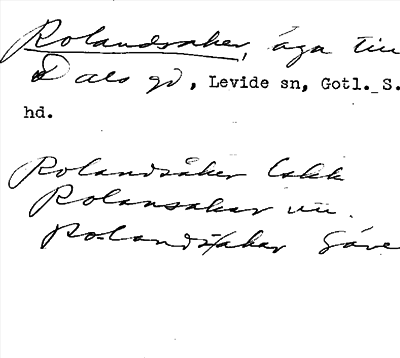 Rolandsaker, äga till
Dals gd, Levide sn, Gotl. S.
hd.
Rolandsåker lakk
Rolansakar
Rolandsakar Gåre